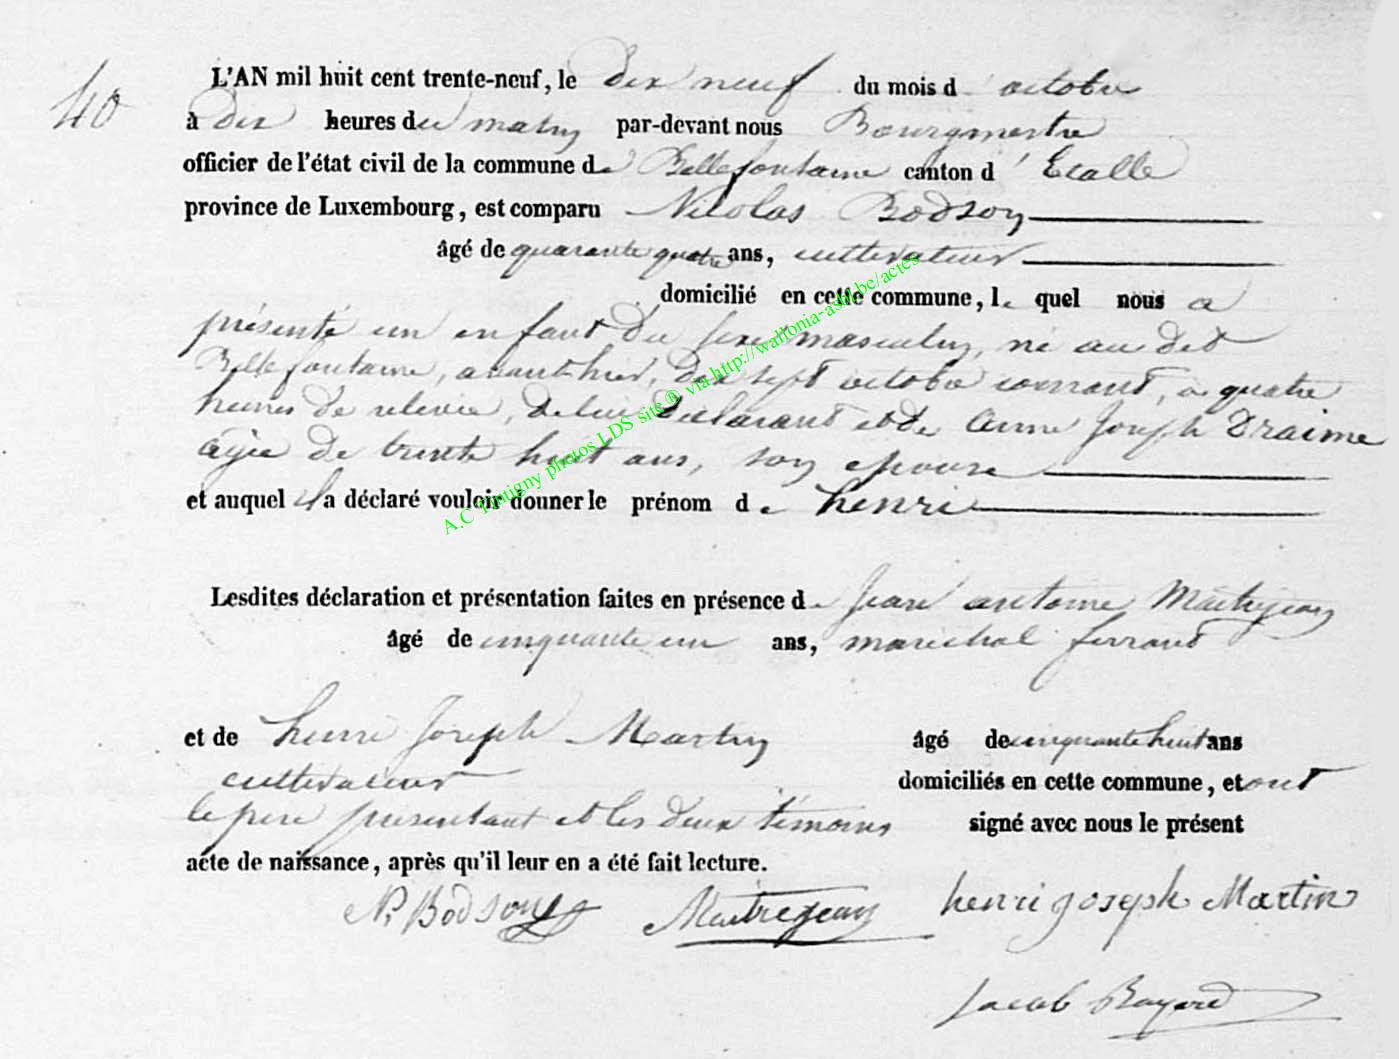 40
L'AN mil huit cent trente-neuf, le dix neuf du mois d' octobre
à dix heures du matin par-devant nous Bourgmestre
officier de l'état civil de la commune de Bellefontaine canton d' Etalle
province de Luxembourg, est comparu Nicolas Bodson
âgé de quarante quatre ans, cultivateur
domicilié en cette commune, le quel nous a
présenté un enfant du sexe masculin, né au dit
Bellefontaine, avant hier, dix sept octobre courant, à quatre
heures de relevée, de lui déclarant et de Anne Joseph Draime
agée de trente huit ans, son epouse
et auquel il a déclaré vouloir donner le prénom de henri
Lesdites déclaration et présentation faites en présence de Jean antoine Maitrejean
âgé de cinquante un ans, marechal ferrant
et de henri Joseph Martin âgé de cinquante huit ans
cultivateur domiciliés en cette commune, et ont
le pere présentant et les deux témoins signé avec nous le présent
acte de naissance, après qu'il leur en a été fait lecture.
N. Bodson Maitrejean henri joseph Martin
Jacob Bayard
A.C Tintigny photos LDS site ® via http://wallonia-asbl.be/actes